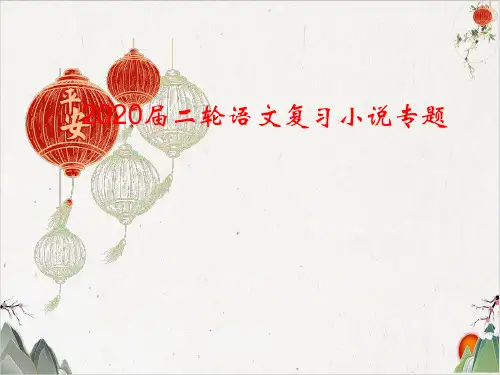 平安
2020届二轮语文复习小说专题